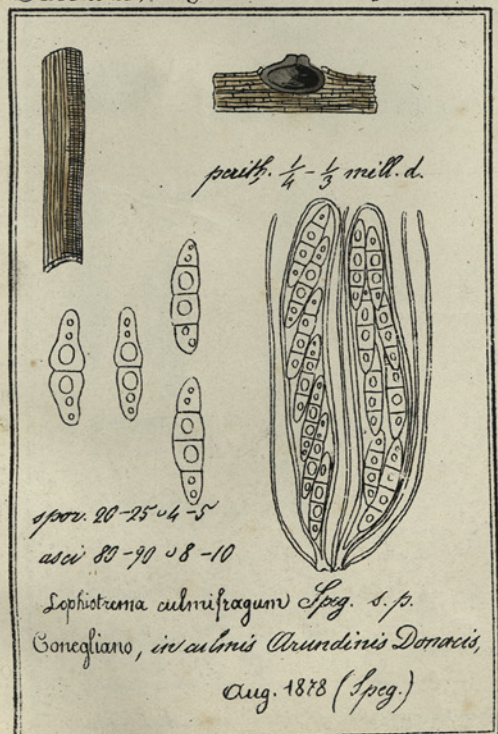 perith. 1/4 - 1/3 mill. d.
spor. 20-25 ᴗ 4-5
asci 80-90 ᴗ 8-10
Lophiotrema culmifragum Speg. s. p.
Conegliano, in culmis Arundinis Donacis,
Aug. 1878 (Speg.)